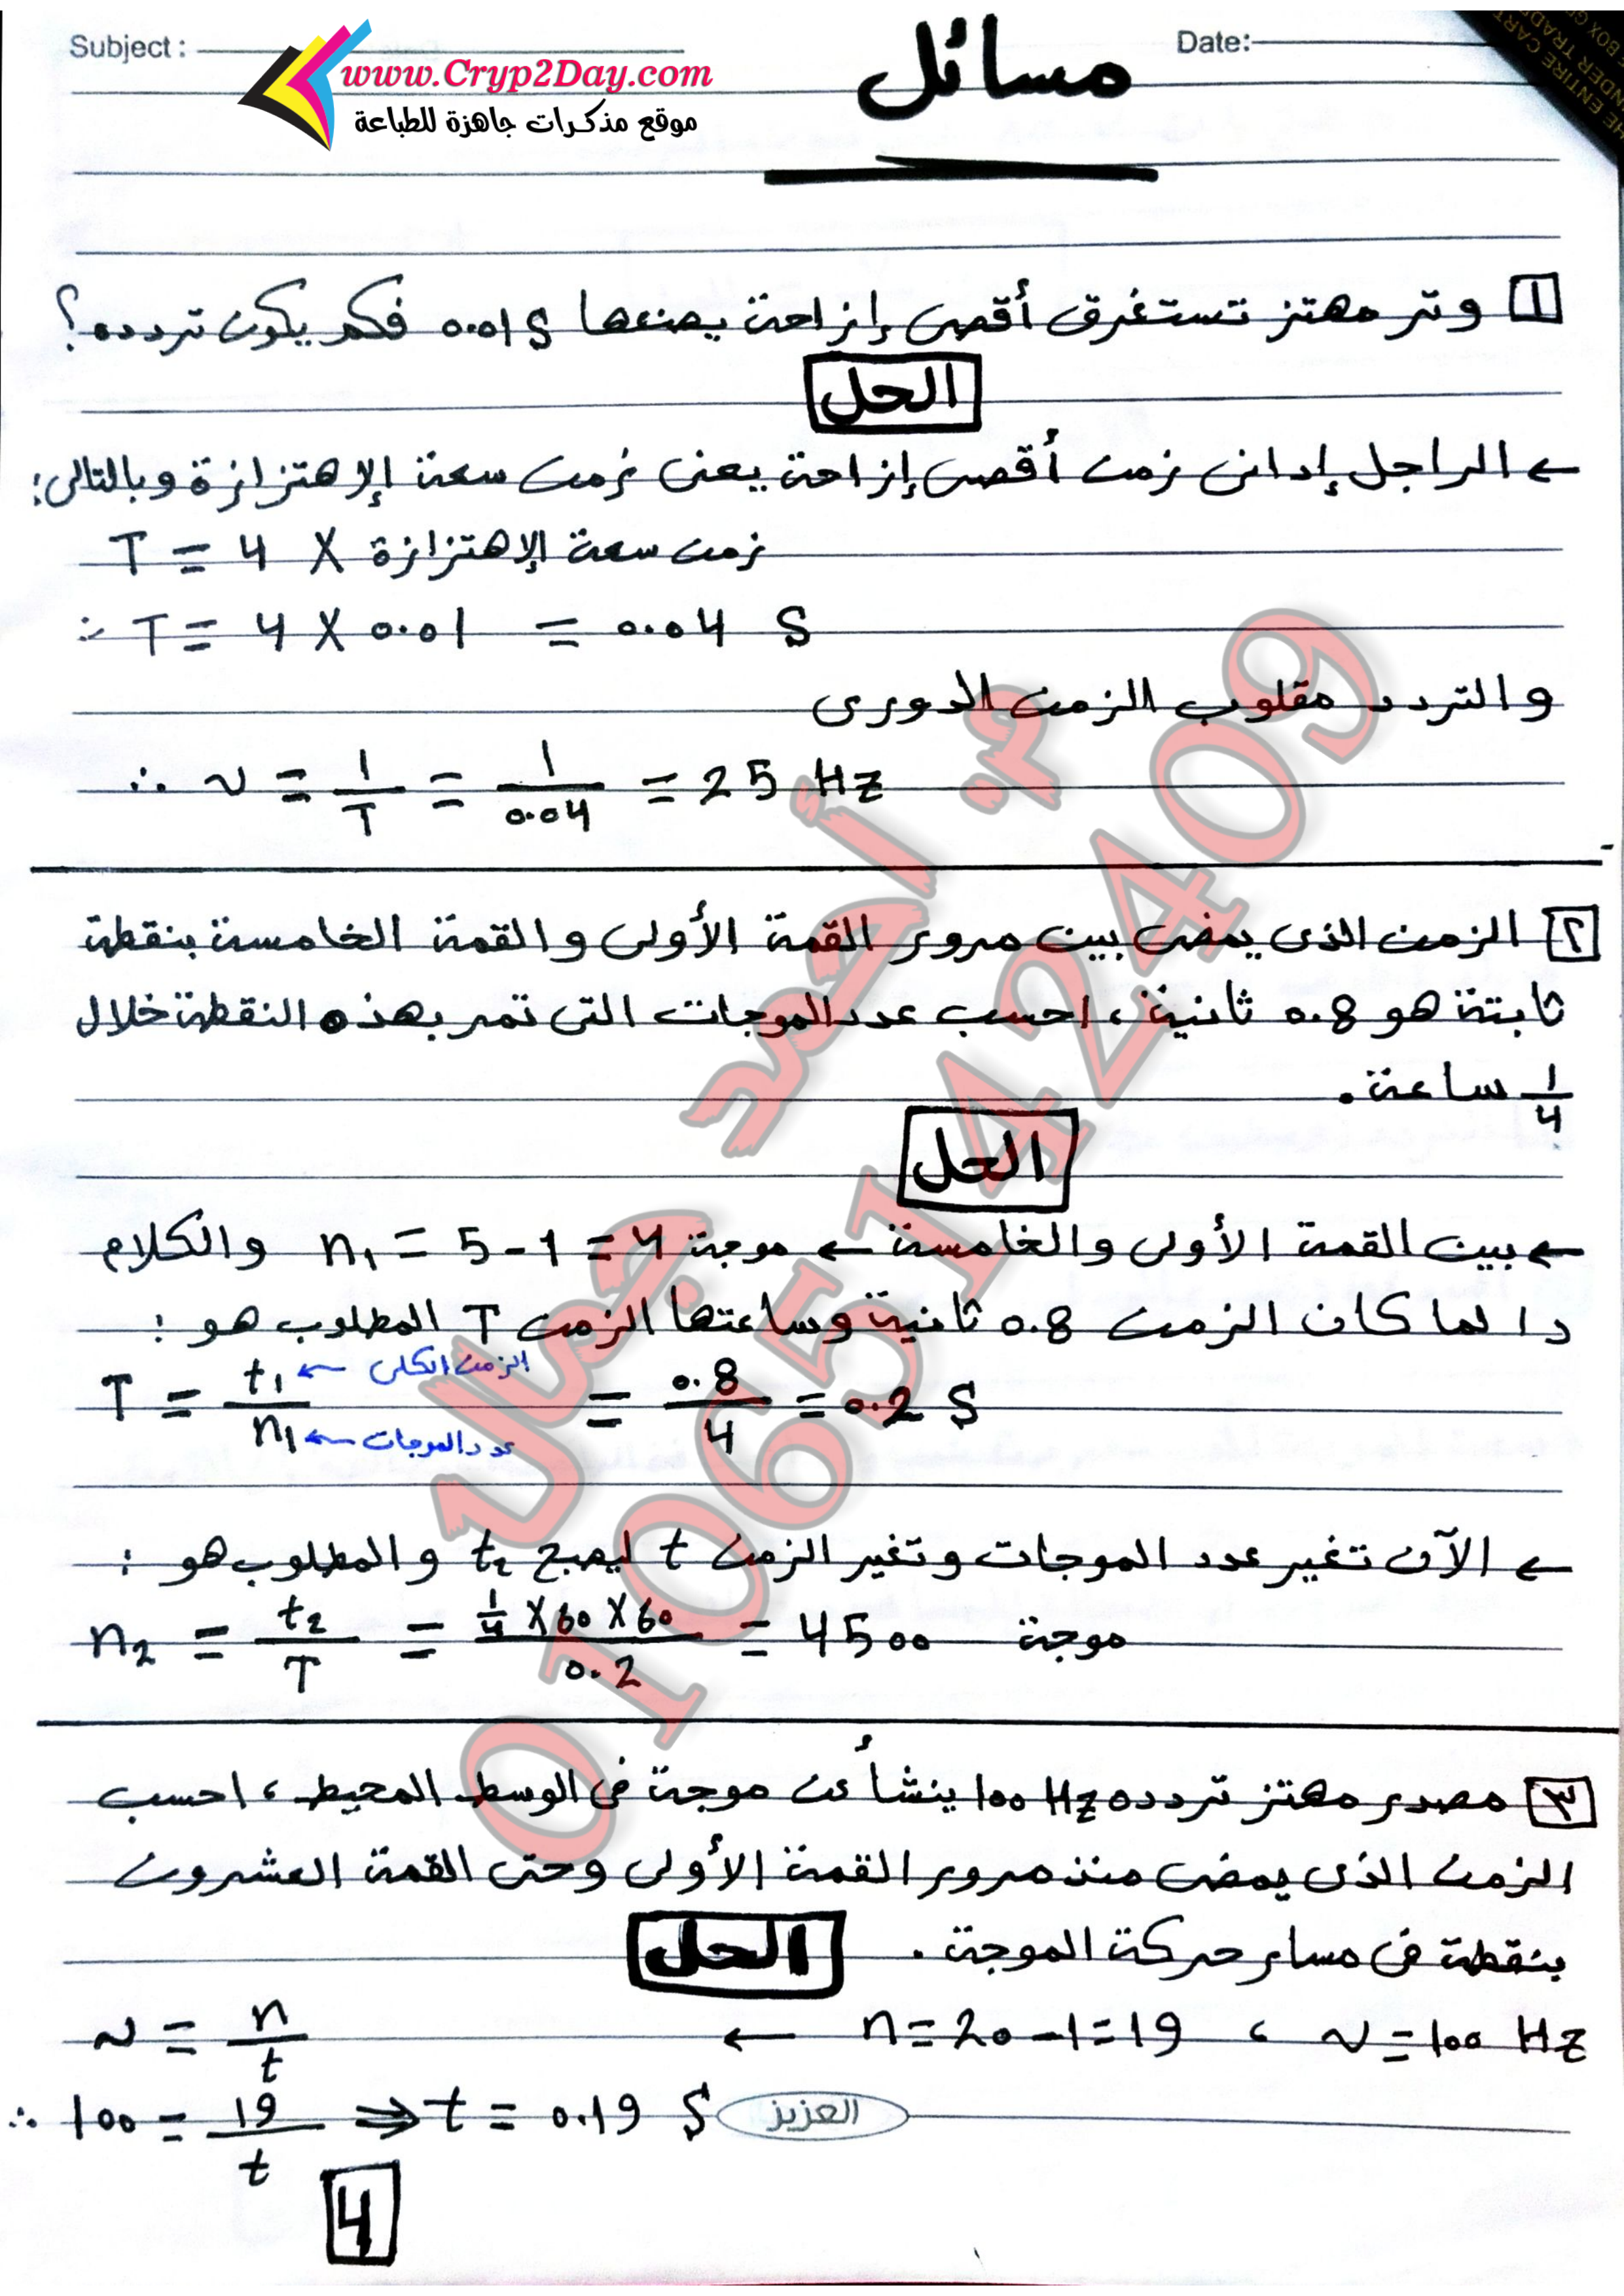 Subject :
Date:
www.Cryp2Day.com
موقع مذكرات جاهزة للطباعة
مسائل
1 وتر مهتز تستغرق أقصى إزاحة يصنعها 0.01 S فكم يكون تردده؟
الحل
← الراجل إدانى زمن أقصى إزاحة يعنى زمن سعة الإهتزازة وبالتالى:
T = 4 X زمن سعة الإهتزازة
∴ T = 4 X 0.01 = 0.04 S
والتردد مقلوب الزمن الدورى
∴ ν = 1/T = 1/0.04 = 25 Hz
٢ الزمن الذى يمضى بين مرور القمة الأولى والقمة الخامسة بنقطة
ثابتة هو 0.8 ثانية ، احسب عدد الموجات التى تمر بهذه النقطة خلال
1/4 ساعة .
الحل
← بين القمة الأولى والخامسة ← موجة n1 = 5 - 1 = 4 والكلام
دا لما كان الزمن 0.8 ثانية وساعتها الزمن T المطلوب هو :
T = t1/n1 = 0.8/4 = 0.2 S
الزمن الكلى ←
عدد الموجات ←
← الآن تغير عدد الموجات وتغير الزمن t ليصبح t2 والمطلوب هو :
n2 = t2/T = 1/4 X 60 X 60/0.2 = 4500 موجة
٣ مصدر مهتز تردده 100 Hz ينشأ عن موجة فى الوسط المحيط ، احسب
الزمن الذى يمضى منذ مرور القمة الأولى وحتى القمة العشرون
بنقطة فى مسار حركة الموجة .
الحل
ν = 100 Hz ، n = 20 - 1 = 19 ←
ν = n/t
∴ 100 = 19/t ⇒ t = 0.19 S
العزيز
4
م. أحمد جمال
01065142409